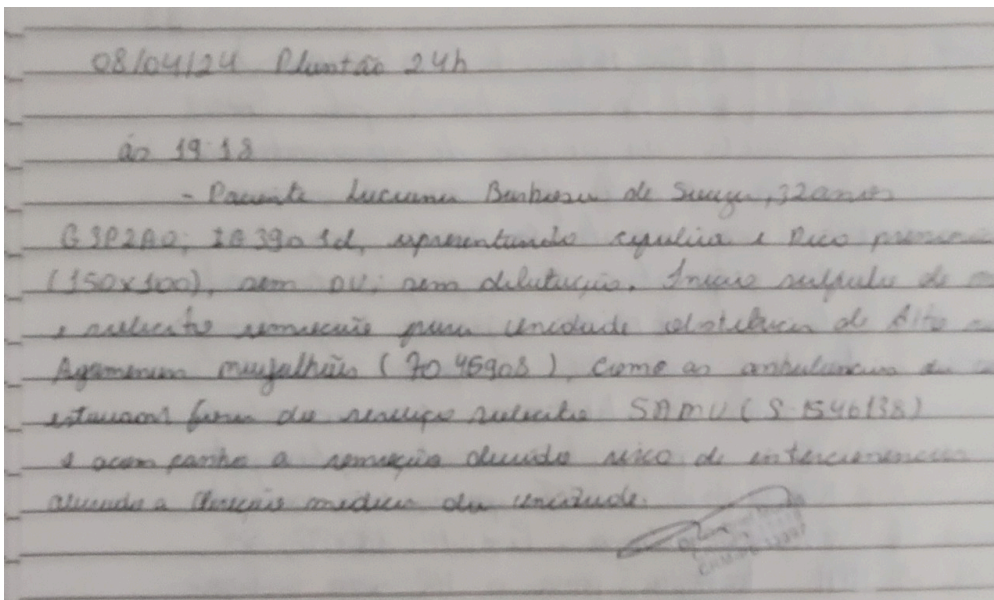 08/04/24 Plantão 24h
ás 19:18
- Paciente Luciana Barbosa de Souza, 32 anos
G3P2A0, IG 39s 1d, apresentando cefaleia e Pico
(150x100), sem DV, sem dilatação. Inicio sulfato de
e solicito remoção para unidade obstetricia de Alto
Agamenon magalhães (7045908). Como as ambulancia da
estavam fora do serviço solicito SAMU (S 1546138)
e acompanho a remoção devido risco de intercorrencia
avisado a direção médica da unidade.